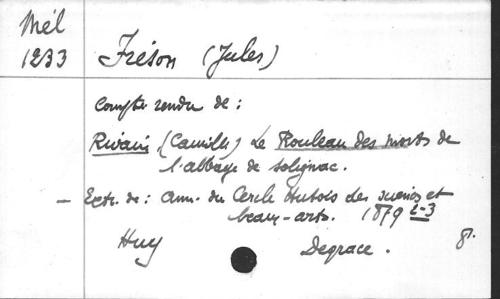 Mél
1233
Fréson (Jules)
Compte rendu de :
Rivain (Camille) Le Rouleau des morts de
l'abbaye de Solignac.
— Extr. de : Ann. du Cercle Hutois des sciences et
beaux-arts. 1879 2-3
Huy Degrace. 8°.